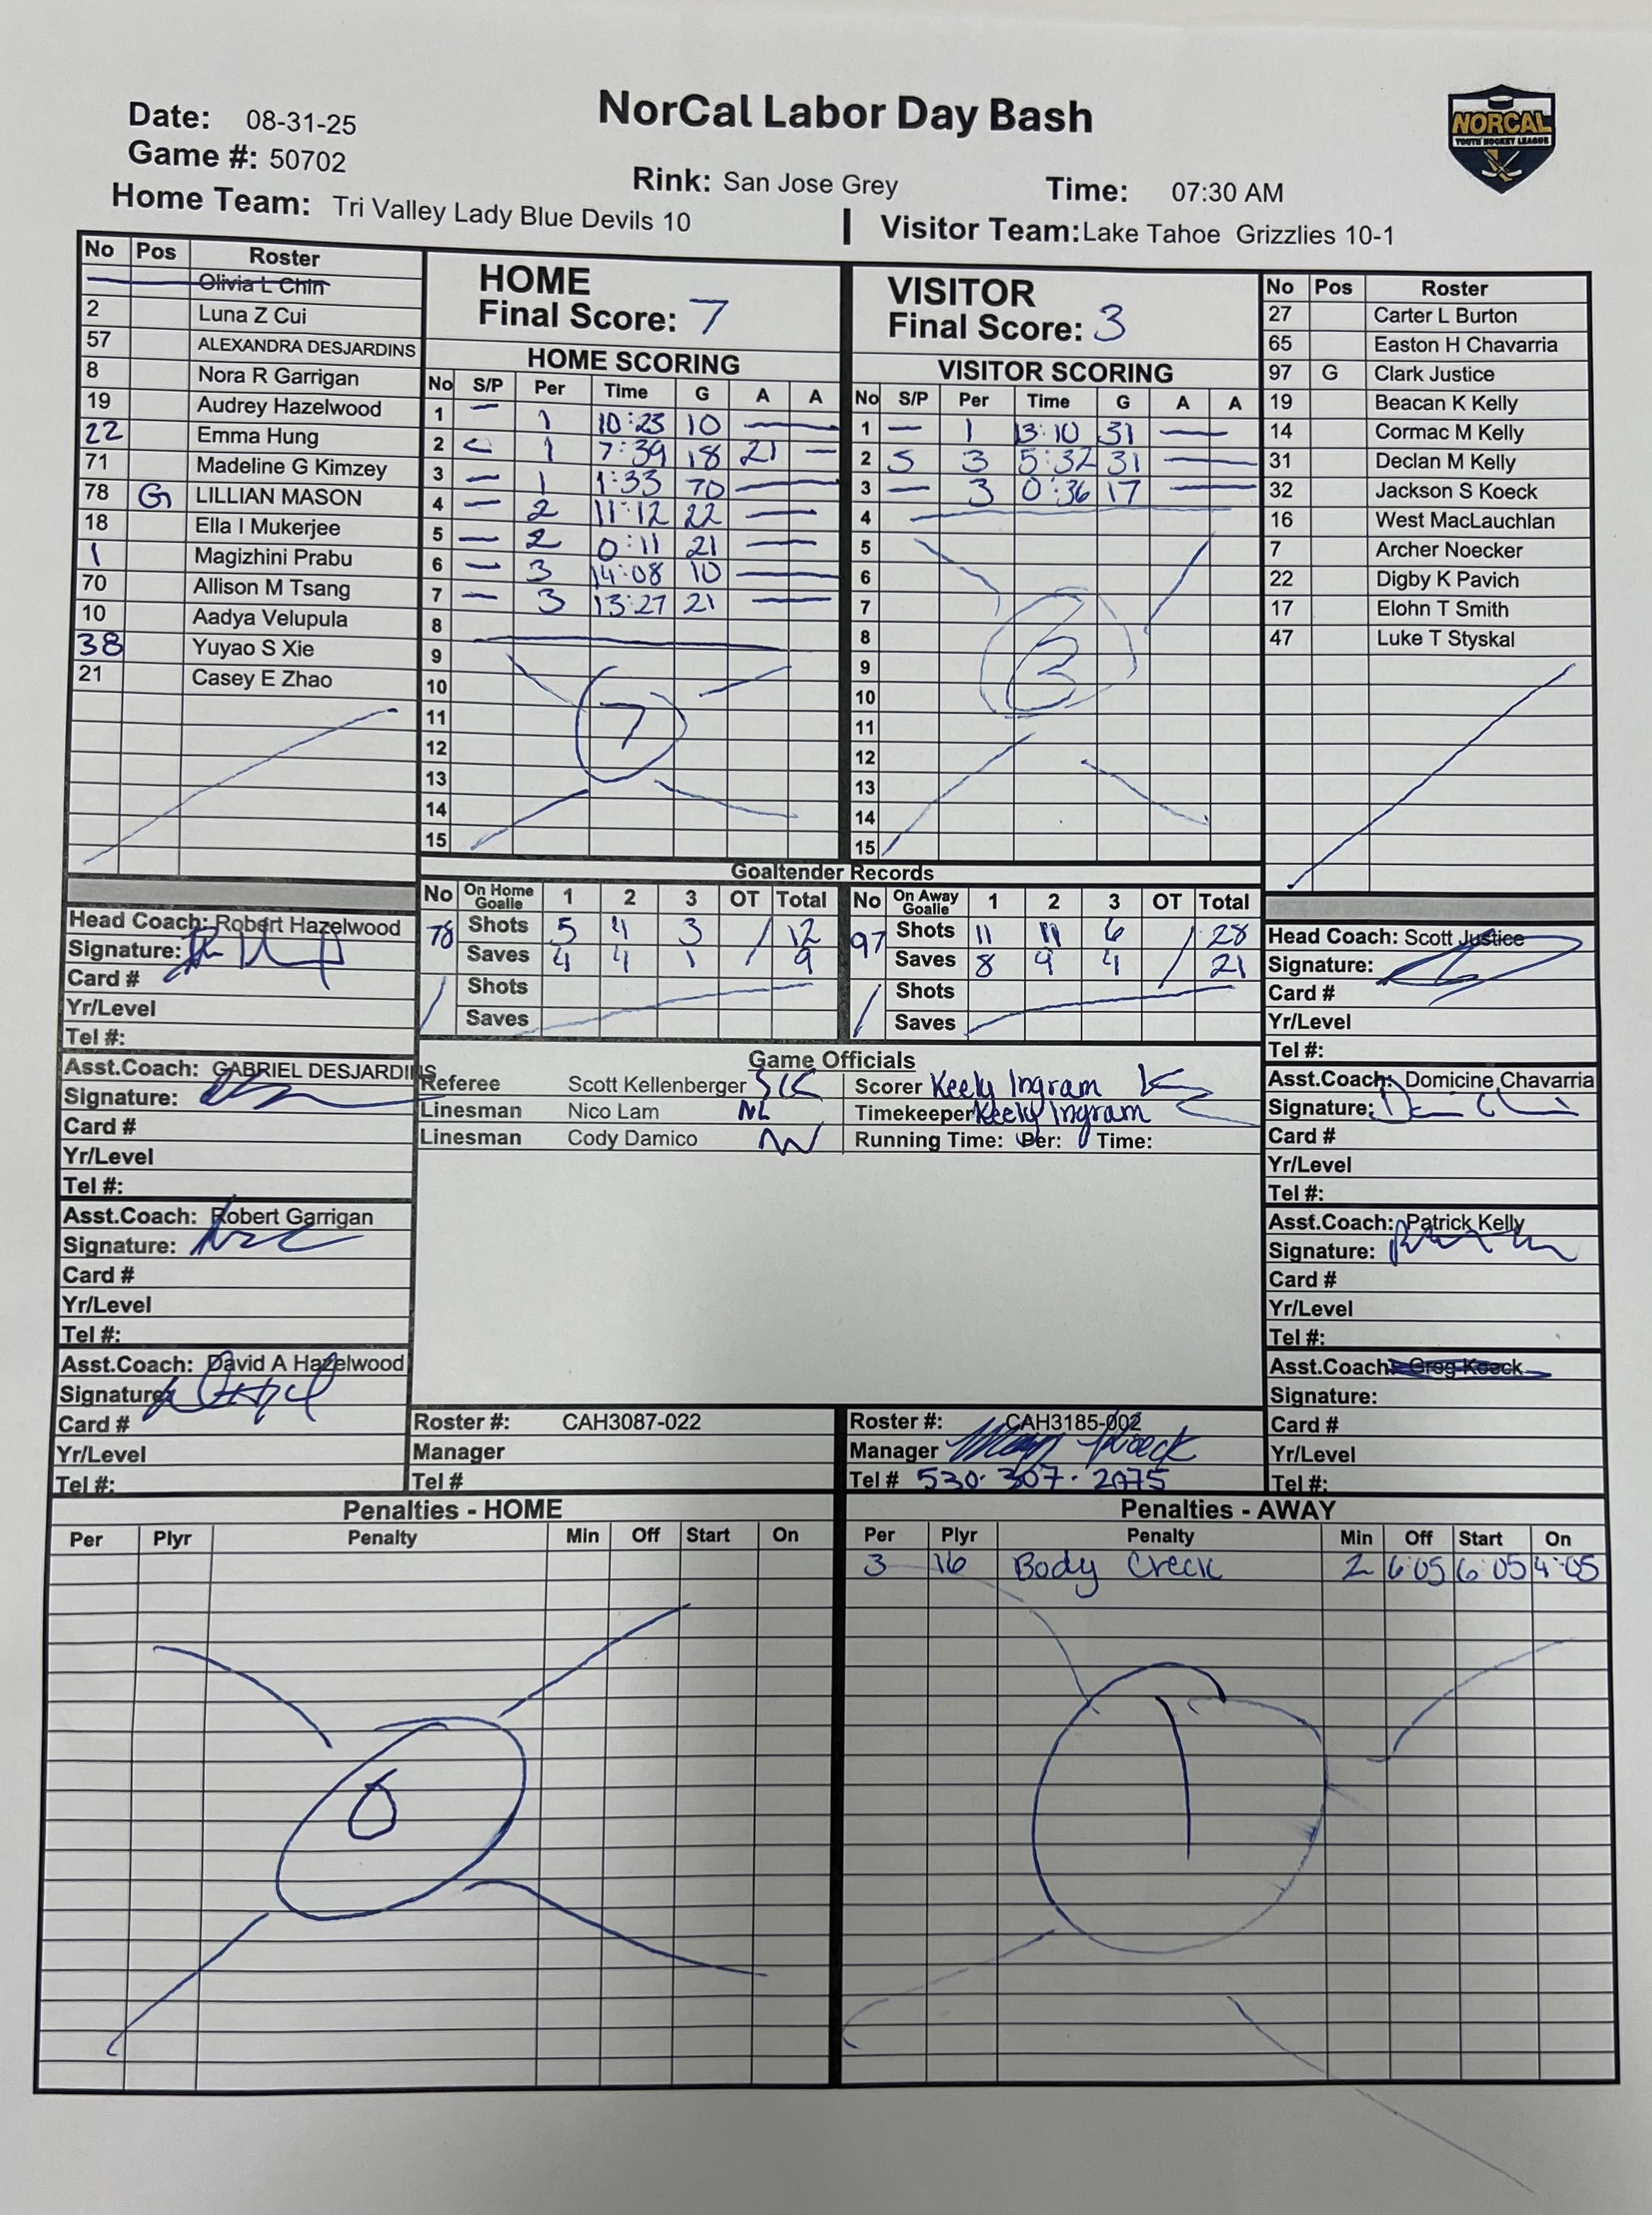 NorCal Labor Day Bash
NORCAL
YOUTH HOCKEY LEAGUE
Date: 08-31-25
Game #: 50702
Rink: San Jose Grey
Time: 07:30 AM
Home Team: Tri Valley Lady Blue Devils 10
Visitor Team: Lake Tahoe Grizzlies 10-1
No Pos Roster
Olivia L Chin
2 Luna Z Cui
57 ALEXANDRA DESJARDINS
8 Nora R Garrigan
19 Audrey Hazelwood
22 Emma Hung
71 Madeline G Kimzey
78 G LILLIAN MASON
18 Ella I Mukerjee
1 Magizhini Prabu
70 Allison M Tsang
10 Aadya Velupula
38 Yuyao S Xie
21 Casey E Zhao
HOME
Final Score: 7
HOME SCORING
No S/P Per Time G A A
1 — 1 10:23 10 —
2 1 7:39 18 21 —
3 — 1 1:33 70 —
4 — 2 11:12 22 —
5 — 2 0:11 21 —
6 — 3 14:08 10 —
7 — 3 13:27 21 —
8
9
10
11
12
13
14
15
7
VISITOR
Final Score: 3
VISITOR SCORING
No S/P Per Time G A A
1 — 1 13:10 31 —
2 S 3 5:32 31 —
3 — 3 0:36 17 —
4
5
6
7
8
9
10
11
12
13
14
15
3
No Pos Roster
27 Carter L Burton
65 Easton H Chavarria
97 G Clark Justice
19 Beacan K Kelly
14 Cormac M Kelly
31 Declan M Kelly
32 Jackson S Koeck
16 West MacLauchlan
7 Archer Noecker
22 Digby K Pavich
17 Elohn T Smith
47 Luke T Styskal
Goaltender Records
No On Home Goalie 1 2 3 OT Total
78 Shots 5 4 3 / 12
Saves 4 4 1 / 9
Shots
Saves
No On Away Goalie 1 2 3 OT Total
97 Shots 11 11 6 / 28
Saves 8 9 4 / 21
Shots
Saves
Head Coach: Robert Hazelwood
Signature:
Card #
Yr/Level
Tel #:
Asst.Coach: GABRIEL DESJARDINS
Signature:
Card #
Yr/Level
Tel #:
Asst.Coach: Robert Garrigan
Signature:
Card #
Yr/Level
Tel #:
Asst.Coach: David A Hazelwood
Signature:
Card #
Yr/Level
Tel #:
Game Officials
Referee Scott Kellenberger SK
Linesman Nico Lam NL
Linesman Cody Damico
Scorer Keely Ingram
Timekeeper Keely Ingram
Running Time: Per: Time:
Head Coach: Scott Justice
Signature:
Card #
Yr/Level
Tel #:
Asst.Coach: Domicine Chavarria
Signature:
Card #
Yr/Level
Tel #:
Asst.Coach: Patrick Kelly
Signature:
Card #
Yr/Level
Tel #:
Asst.Coach: Greg Koeck
Signature:
Card #
Yr/Level
Tel #:
Roster #: CAH3087-022
Manager
Tel #
Roster #: CAH3185-002
Manager Koeck
Tel # 530-307-2975
Penalties - HOME
Per Plyr Penalty Min Off Start On
0
Penalties - AWAY
Per Plyr Penalty Min Off Start On
3 16 Body Creck 2 6:05 6:05 4:05
1